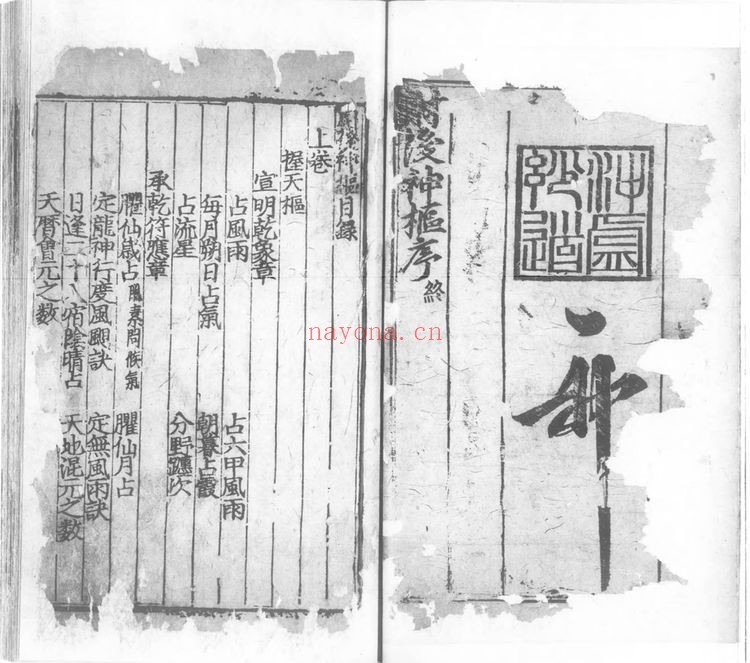 後神樞序 終
神樞目錄
上卷
握天樞
宣明乾象章
占風雨 占六甲風雨
每月朔日占氣 朝暮占霞
占流星 分野躔次
承乾符應章
臞仙歲占 素問候氣 臞仙月占
定龍神行度風颶訣 定無風雨訣
日逢二十八宿陰晴占 天地混元之數
天曆會元之數
nayona.cn